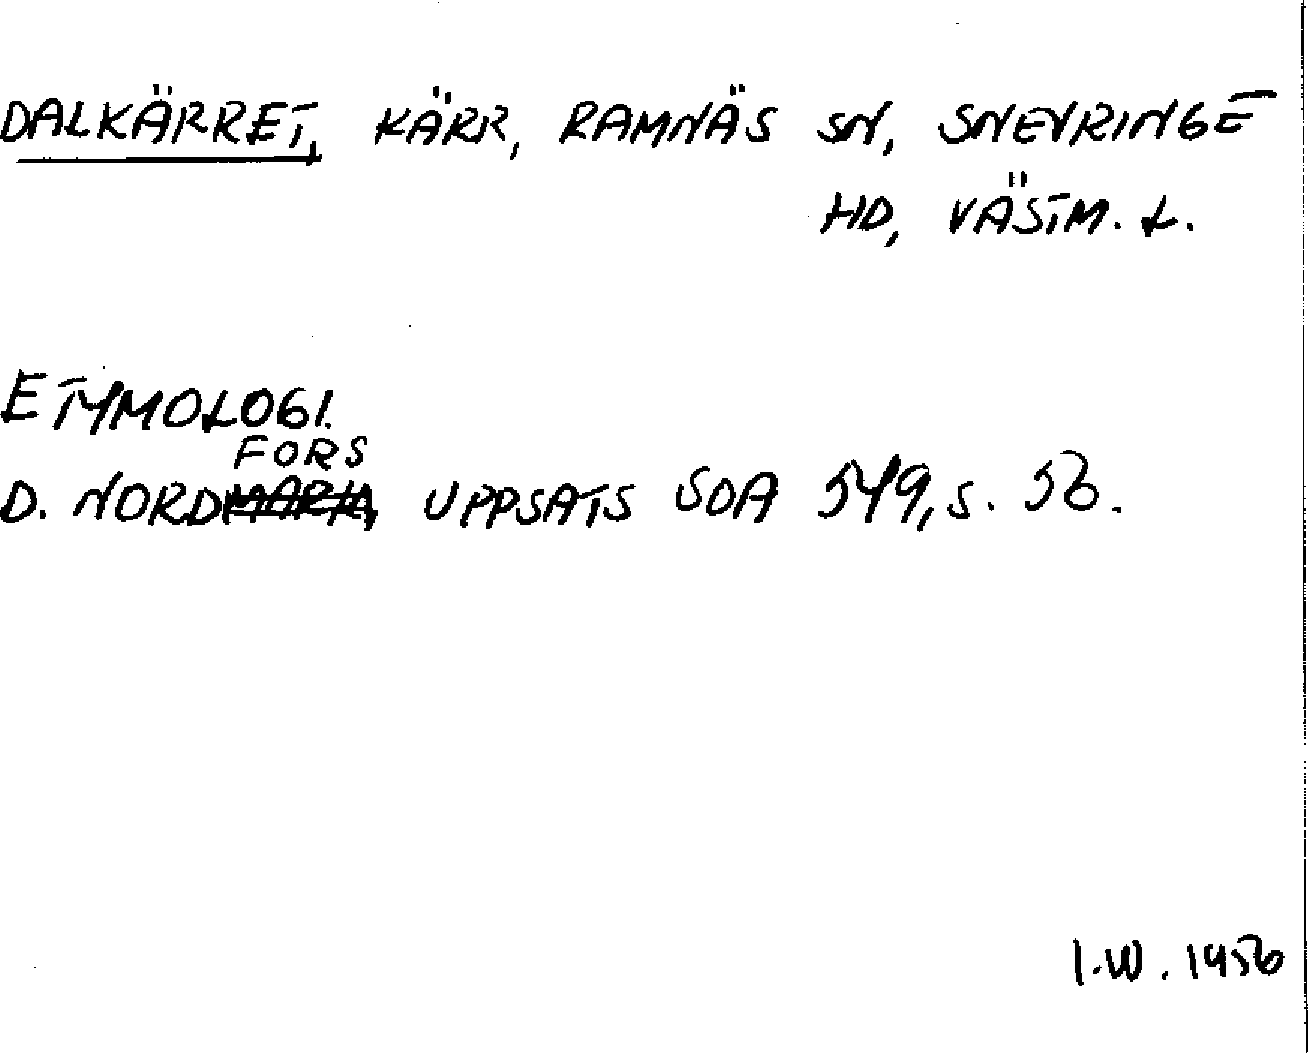 DALKÄRRET, KÄRR, RAMNÄS SN, SNEVRINGE
HD, VÄSTM. L.
ETYMOLOGI.
FORS
D. NORDMARK, UPPSATS SOA 549, S. 56.
I.W. 1956